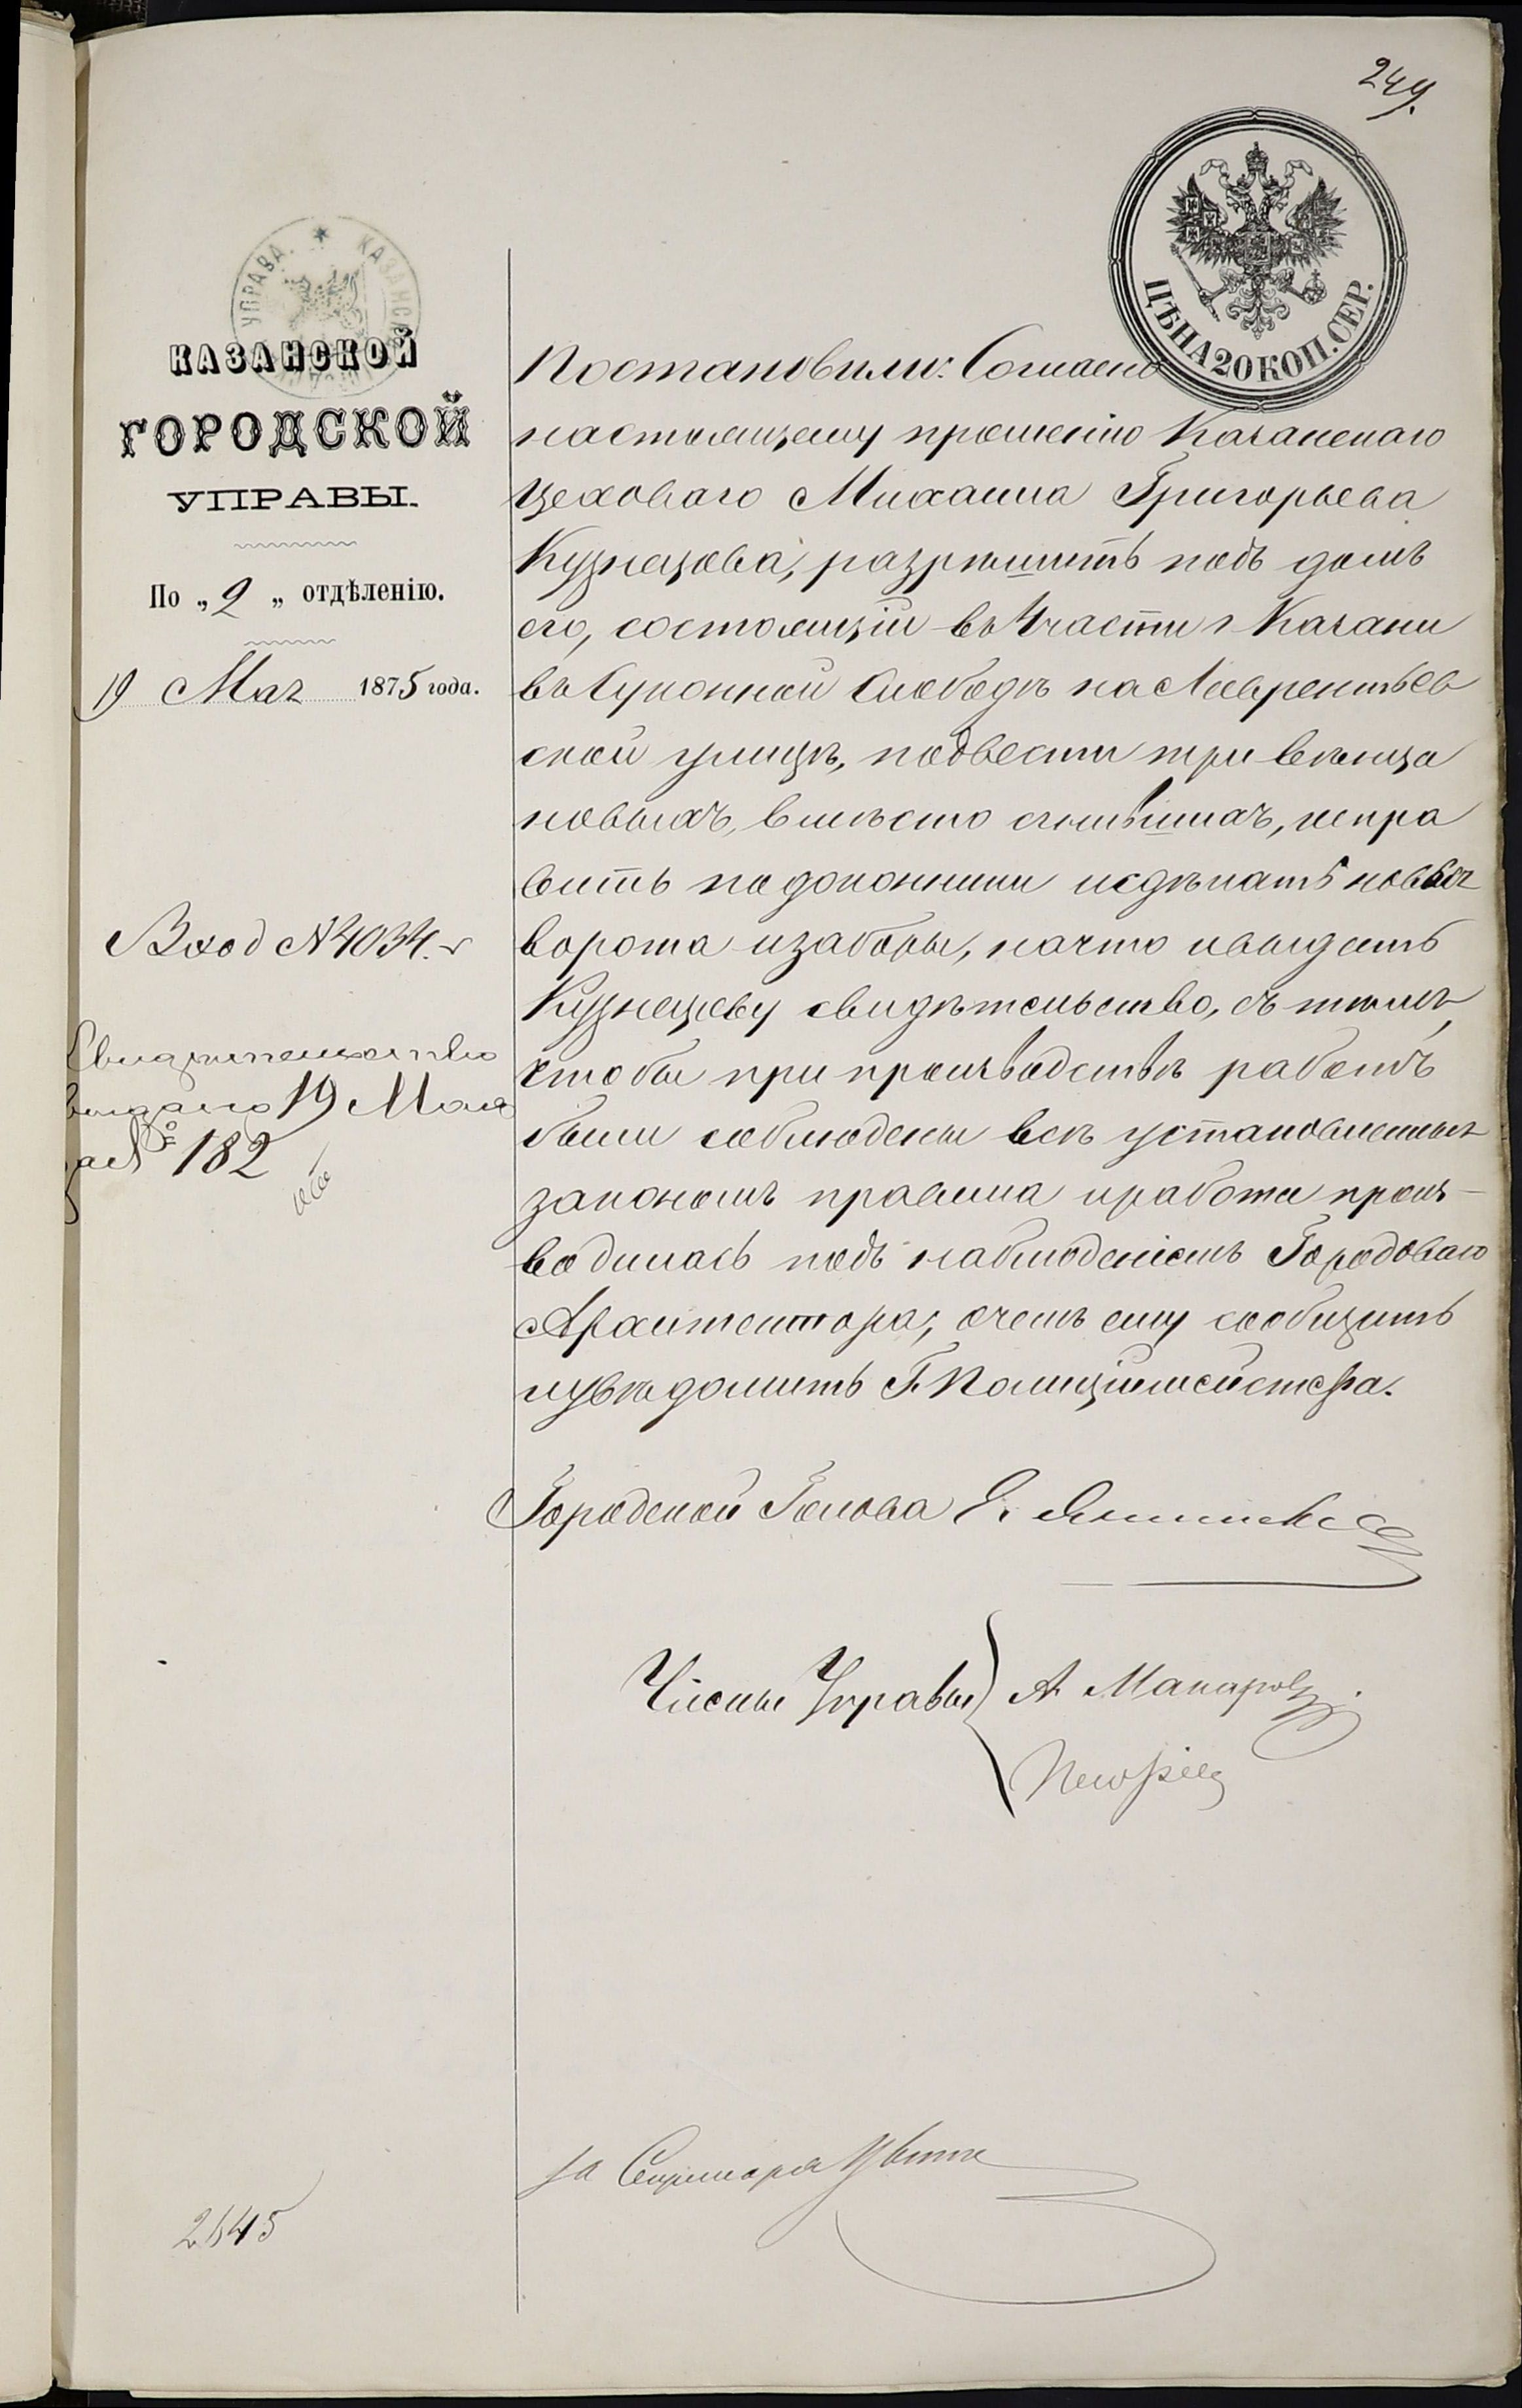 249.
ЦѢНА 20 КОП. СЕР.
УПРАВА. * КАЗАНСК
КАЗАНСКОЙ
ГОРОДСКОЙ
УПРАВЫ.
По „2„ отдѣленію.
19 Мая 1875 года.
Вход № 4034.
Свидѣтельство
выдано 19 Мая
за № 182
Постановили: Согласно
настоящему прошенію Казанскаго
Цеховаго Михаила Григорьева
Кузнецова, разрѣшить подъ домъ
его, состоящій въ 4 части г. Казани
въ Суконной Слободѣ на Лаврентьев
ской улицѣ, подвести три вѣнца
новыхъ, вмѣсто сгнившихъ, испра
вить подоконники и сдѣлать новыя
ворота и заборы, на что и выдать
Кузнецову свидѣтельство, съ тѣмъ,
чтобы при производствѣ работъ
были соблюдены всѣ установленныя
закономъ правила и работа произ-
водилась подъ наблюденіемъ Городоваго
Архитектора, о чемъ ему сообщить
и увѣдомить Г. Полиціймейстера.
Городской Голова Е.
Члены Управы А. Макаровъ
за Секретаря
2645